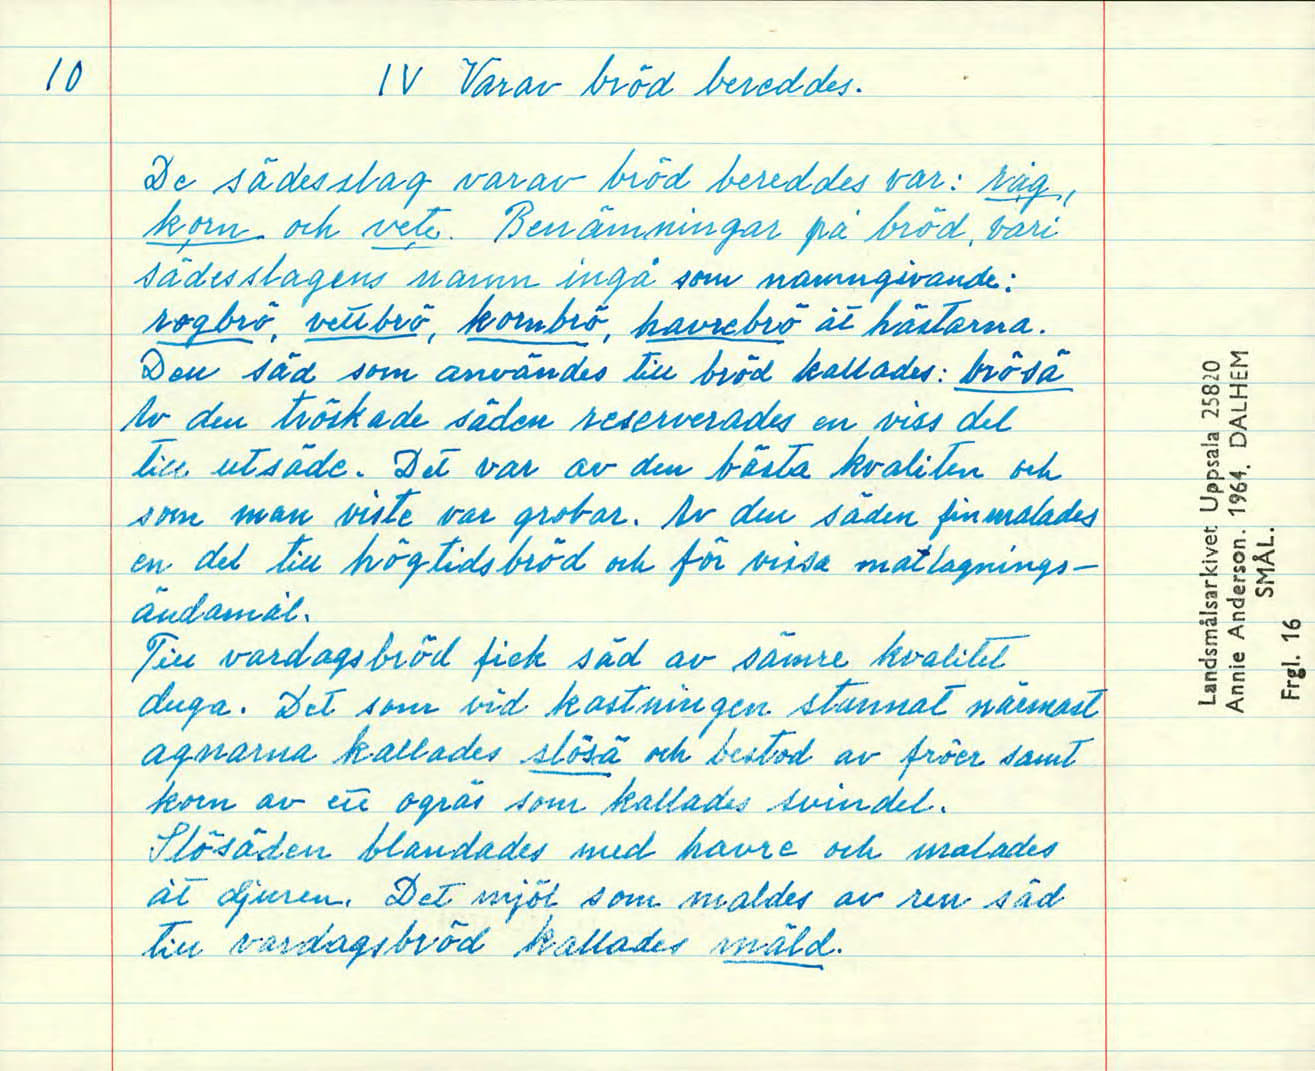 10
IV Varav bröd bereddes.
De sädesslag varav bröd bereddes var: råg,
korn och vete. Benämningar på bröd, vari
sädesslagens namn ingå som namngivande:
rogbrö, vettbrö, kornbrö, havrebrö åt hästarna.
Den säd som användes till bröd kallades: brösä
Av den tröskade säden reserverades en viss del
till utsäde. Det var av den bästa kvaliten och
som man viste var grobar. Av den säden finmalades
en del till högtidsbröd och för vissa matlagnings-
ändamål.
Till vardagsbröd fick säd av sämre kvalitet
duga. Det som vid kastningen stannat närmast
agnarna kallades slösä och bestod av fröer samt
korn av ett ogräs som kallades svindel.
Slösäden blandades med havre och malades
åt djuren. Det mjöl som maldes av ren säd
till vardagsbröd kallades mäld.
Landsmålsarkivet Uppsala 25820
Annie Anderson. 1964. DALHEM
SMÅL.
Frgl. 16